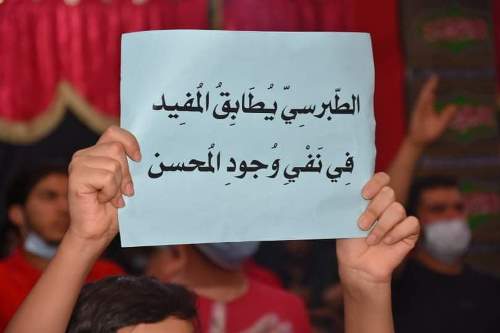 الطّبرسيّ يُطَابِقُ المُفِيد
فِي نَفْيِ وُجودِ المُحسن